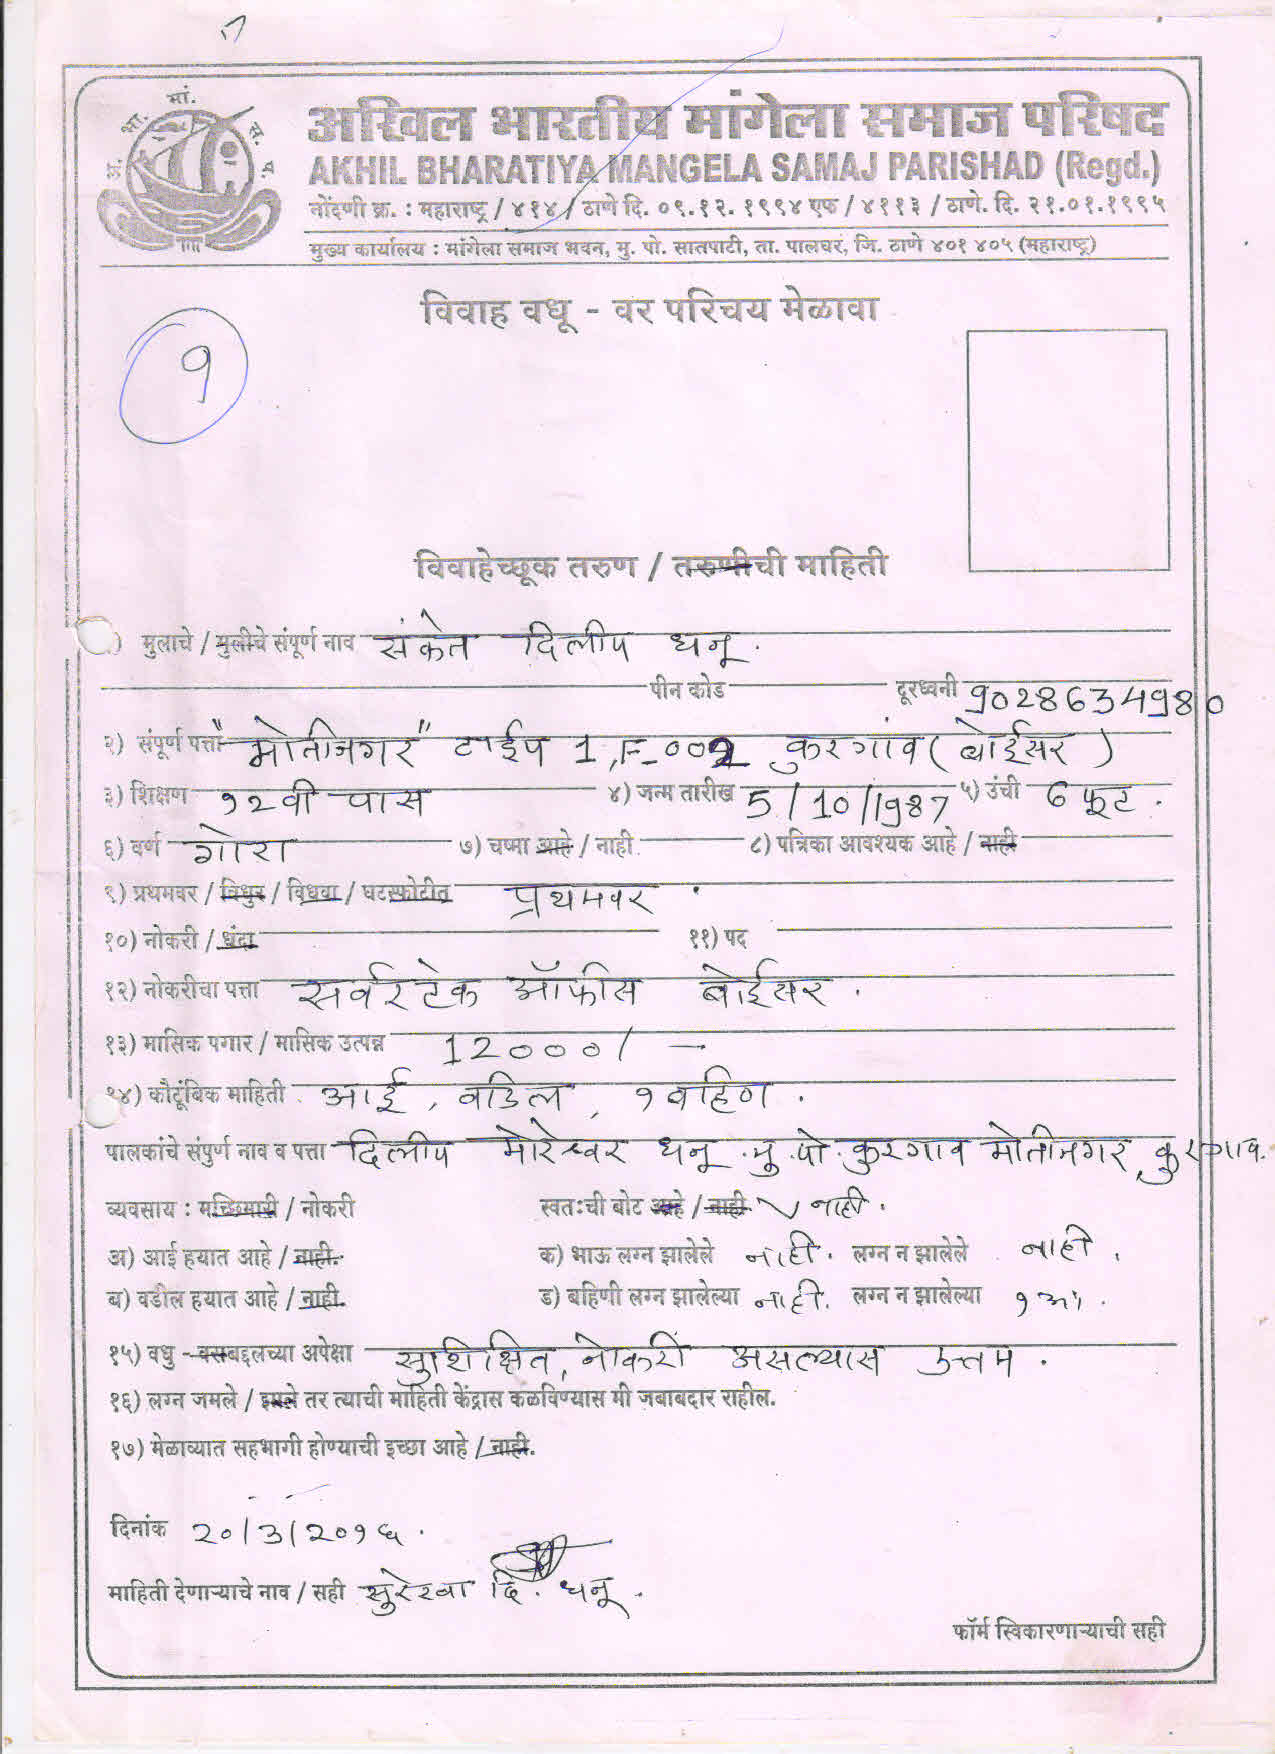 अ. भा. मां. स. प.
अखिल भारतीय मांगेला समाज परिषद
AKHIL BHARATIYA MANGELA SAMAJ PARISHAD (Regd.)
नोंदणी क्र. : महाराष्ट्र / ४१४ / ठाणे दि. ०९.१२. १९९४ एफ / ४११३ / ठाणे. दि. २१.०१.१९९५
मुख्य कार्यालय : मांगेला समाज भवन, मु. पो. सातपाटी, ता. पालघर, जि. ठाणे ४०१ ४०५ (महाराष्ट्र)
विवाह वधू - वर परिचय मेळावा
१
विवाहेच्छूक तरुण / तरुणीची माहिती
) मुलाचे / मुलीचे संपूर्ण नाव संकेत दिलीप धनू.
पीन कोड दूरध्वनी 9028634980
२) संपूर्ण पत्ता "मोतीनगर" टाईप 1, F-002 कुरगांव (बोईसर)
३) शिक्षण १२वी पास ४) जन्म तारीख 5/10/1987 ५) उंची 6 फूट.
६) वर्ण गोरा ७) चष्मा आहे / नाही ८) पत्रिका आवश्यक आहे / नाही
९) प्रथमवर / विधुर / विधवा / घटस्फोटीत प्रथमवर.
१०) नोकरी / धंदा ११) पद
१२) नोकरीचा पत्ता सर्वरटेक ऑफीस बोईसर.
१३) मासिक पगार / मासिक उत्पन्न 12000/-
१४) कौटूंबिक माहिती आई, वडिल, १ बहिण.
पालकांचे संपुर्ण नाव व पत्ता दिलीप मोरेश्वर धनू. मु. पो. कुरगाव मोतीनगर, कुरगाव.
व्यवसाय : मच्छिमारी / नोकरी स्वतःची बोट आहे / नाही. नाही.
अ) आई हयात आहे / नाही. क) भाऊ लग्न झालेले नाही. लग्न न झालेले नाही.
ब) वडील हयात आहे / नाही. ड) बहिणी लग्न झालेल्या नाही. लग्न न झालेल्या १
१५) वधु - वराबद्दलच्या अपेक्षा सुशिक्षित, नोकरी असल्यास उत्तम.
१६) लग्न जमले / झाले तर त्याची माहिती केंद्रास कळविण्यास मी जबाबदार राहील.
१७) मेळाव्यात सहभागी होण्याची इच्छा आहे / नाही.
दिनांक २०/3/२०१६.
माहिती देणाऱ्याचे नाव / सही सुरेखा दि. धनू.
फॉर्म स्विकारणाऱ्याची सही